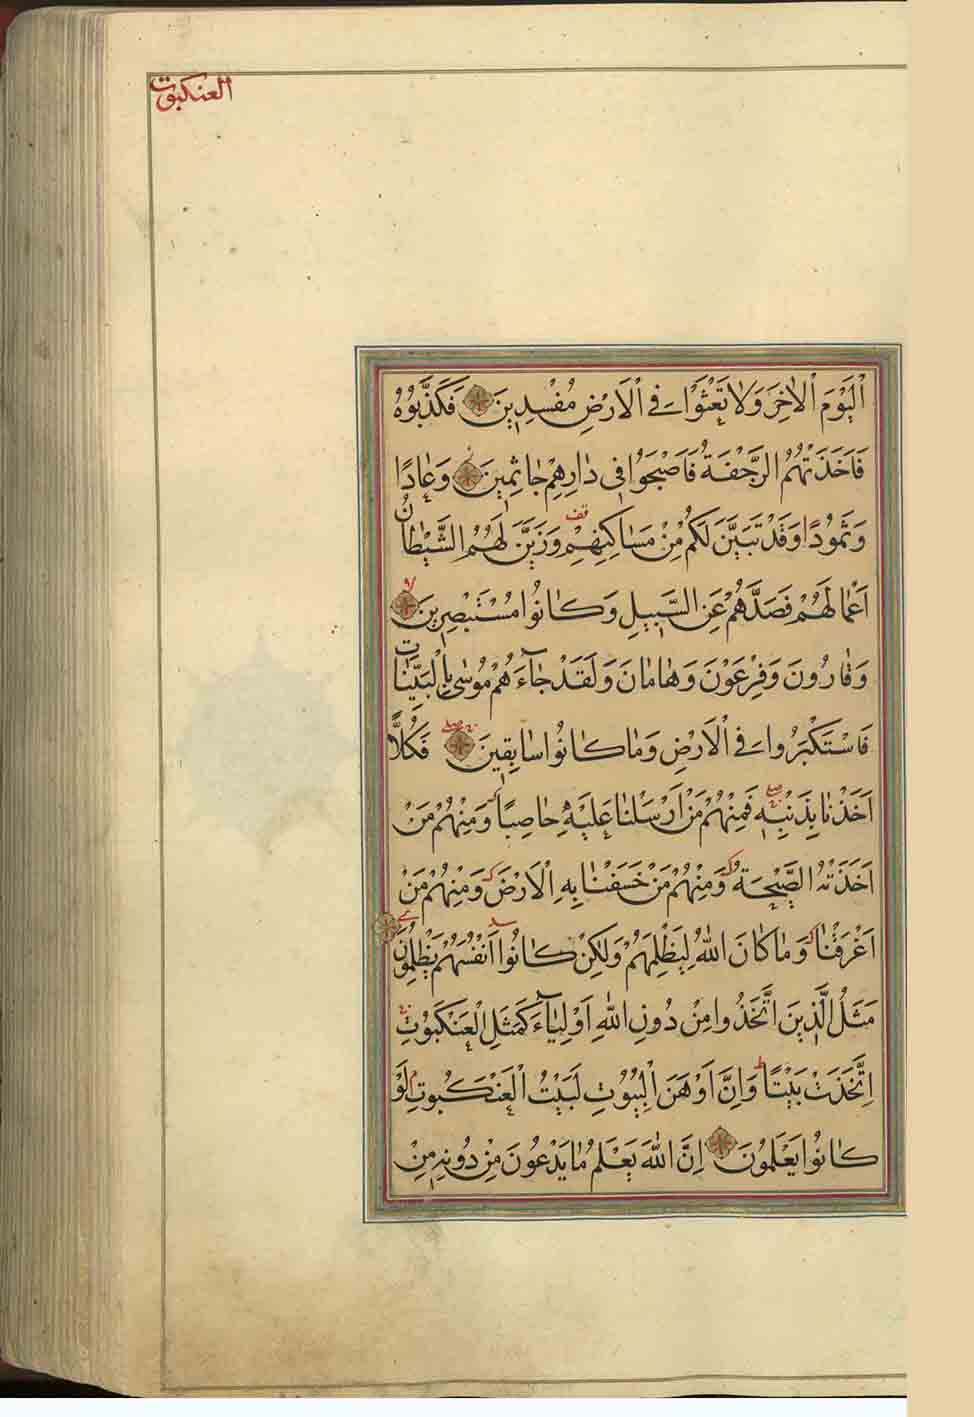 العنكبوت
اَلْيَوْمَ اْلاٰخِرَ وَلَا تَعْثَوْا فِى اْلاَرْضِ مُفْسِدِينَ فَكَذَّبُوهُ
فَاَخَذَتْهُمُ الرَّجْفَةُ فَاَصْبَحُوا فِى دَارِهِمْ جَاثِمِينَ وَعَادًا
وَثَمُودًا وَقَدْ تَبَيَّنَ لَكُمْ مِنْ مَسَاكِنِهِمْ قف وَزَيَّنَ لَهُمُ الشَّيْطَانُ
اَعْمَالَهُمْ فَصَدَّهُمْ عَنِ السَّبِيلِ وَكَانُوا مُسْتَبْصِرِينَ لا
وَقَارُونَ وَفِرْعَوْنَ وَهَامَانَ وَلَقَدْ جَآءَهُمْ مُوسٰى بِالْبَيِّنَاتِ
فَاسْتَكْبَرُوا فِى اْلاَرْضِ وَمَا كَانُوا سَابِقِينَ فَكُلًّا
اَخَذْنَا بِذَنْبِهِ فَمِنْهُمْ مَنْ اَرْسَلْنَا عَلَيْهِ حَاصِبًا وَمِنْهُمْ مَنْ
اَخَذَتْهُ الصَّيْحَةُ وَمِنْهُمْ مَنْ خَسَفْنَا بِهِ اْلاَرْضَ وَمِنْهُمْ مَنْ
اَغْرَقْنَا وَمَا كَانَ اللّٰهُ لِيَظْلِمَهُمْ وَلٰكِنْ كَانُوا اَنْفُسَهُمْ يَظْلِمُونَ
مَثَلُ الَّذِينَ اتَّخَذُوا مِنْ دُونِ اللّٰهِ اَوْلِيَآءَ كَمَثَلِ الْعَنْكَبُوتِ
اِتَّخَذَتْ بَيْتًا ط وَاِنَّ اَوْهَنَ الْبُيُوتِ لَبَيْتُ الْعَنْكَبُوتِ م لَوْ
كَانُوا يَعْلَمُونَ اِنَّ اللّٰهَ يَعْلَمُ مَا يَدْعُونَ مِنْ دُونِهِ مِنْ